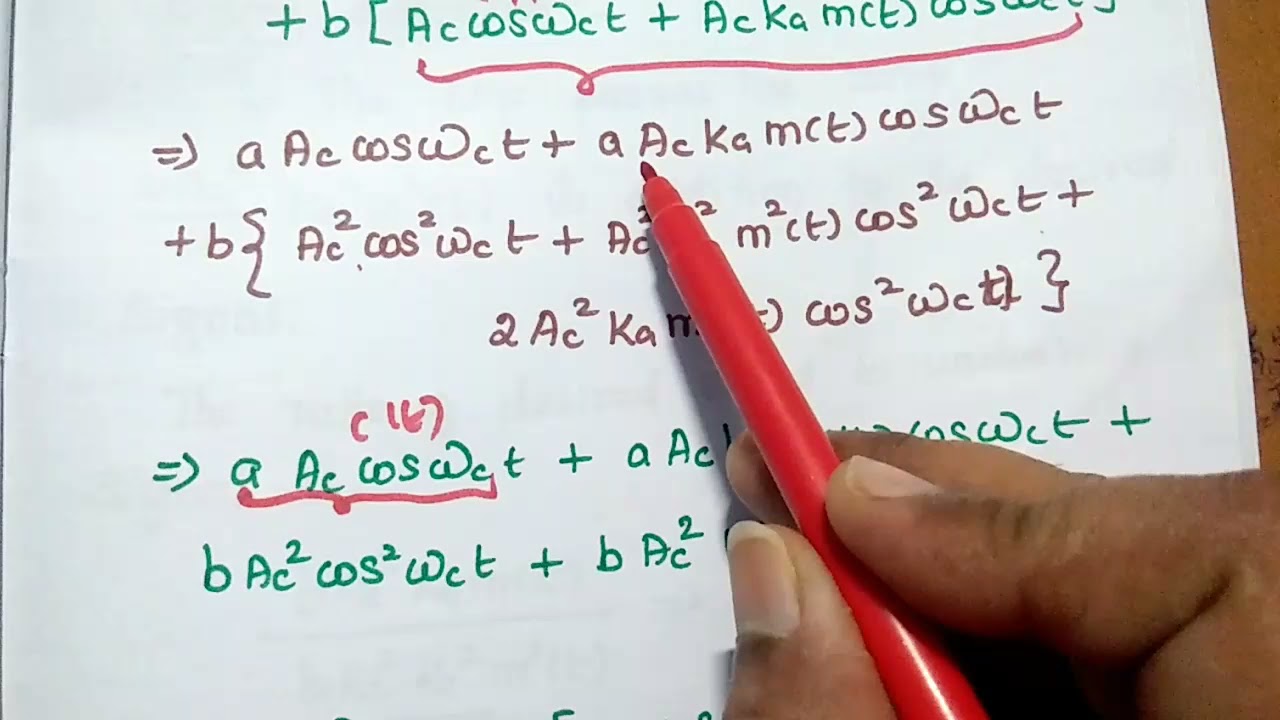 + b [ Ac cosωct + Ac Ka m(t) cosωct ]
=> a Ac cosωct + a Ac Ka m(t) cosωct
+ b { Ac² cos²ωct + Ac² ² m²(t) cos²ωct +
2 Ac² Ka m t) cos²ωct }
c(t)
=> a Ac cosωct + a Ac cosωct +
b Ac² cos²ωct + b Ac²